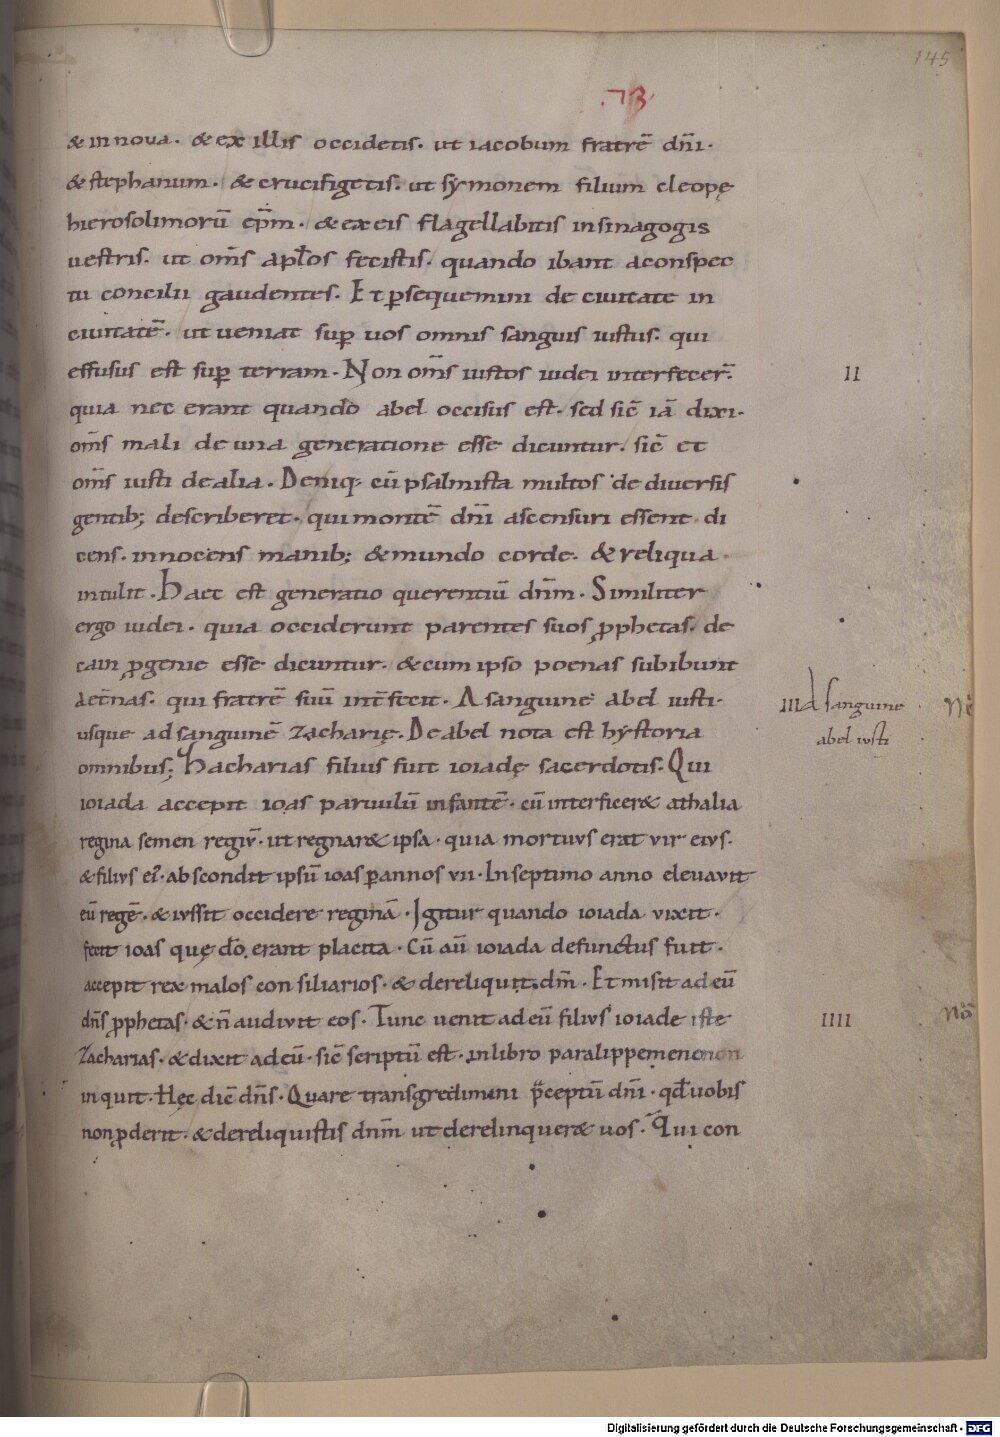 145
& in nova · & ex illis occidetis · ut iacobum fratrē dn̄i ·
& stephanum · & crucifigetis · ut symonem filium cleopę
hierosolimorū ep̄m · & ex eis flagellabitis in sinagogis
uestris · ut om̄s apl̄os fecistis · quando ibant aconspec
tu concilii gaudentes · Et ꝑsequemini de ciuitate in
ciuitatē · ut ueniat suꝑ uos omnis sanguis iustus · qui
effusus est suꝑ terram · Non om̄s iustos iudei interfecer̄ ·
II
quia nec erant quando abel occisus est · sed sic̄ iā dixi ·
om̄s mali de una generatione esse dicuntur · sic̄ et
om̄s iusti de alia · Deniq; cū psalmista multos de diuersis
gentib; describeret · qui montē dn̄i ascensuri essent · di
cens · innocens manib; & mundo corde · & reliqua ·
intulit · Haec est generatio querentiū dn̄m · Similiter
ergo iudei · quia occiderunt parentes suos ꝓphetas · de
cain ꝓgenie esse dicuntur · & cum ipso poenas subibunt
aet̄nas · qui fratrē suū int̄fecit · A sanguine abel iusti ·
III A sanguine
abel iusti
usque ad sanguinē zacharię · De abel nota est hystoria
omnibus; Zacharias filius fuit ioiadę sacerdotis · Qui
ioiada accepit ioas paruulū infantē · cū interficer& athalia
regina semen regiū · ut regnar& ipsa · quia mortuus erat vir eius ·
& filius ei' · abscondit ipsū ioas ꝑ annos vii · In septimo anno eleuavit
eū regē · & iussit occidere reginā · Igitur quando ioiada vixit ·
fecit ioas quę dō erant placita · Cū aū ioiada defunctus fuit ·
accepit rex malos consiliarios · & dereliquit dn̄m · Et misit ad eū
dn̄s ꝓphetas · & n̄ audivit eos · Tunc uenit ad eū filius ioiade iste
IIII
Zacharias · & dixit ad eū · sic̄ scriptū est · in libro paralippemenonon
inquit · Hęc dic̄ dn̄s · Quare transgredimini p̄ceptū dn̄i · qd̄ uobis
non ꝓderit · & dereliquistis dn̄m ut derelinquer& uos · Qui con
Digitalisierung gefördert durch die Deutsche Forschungsgemeinschaft - DFG